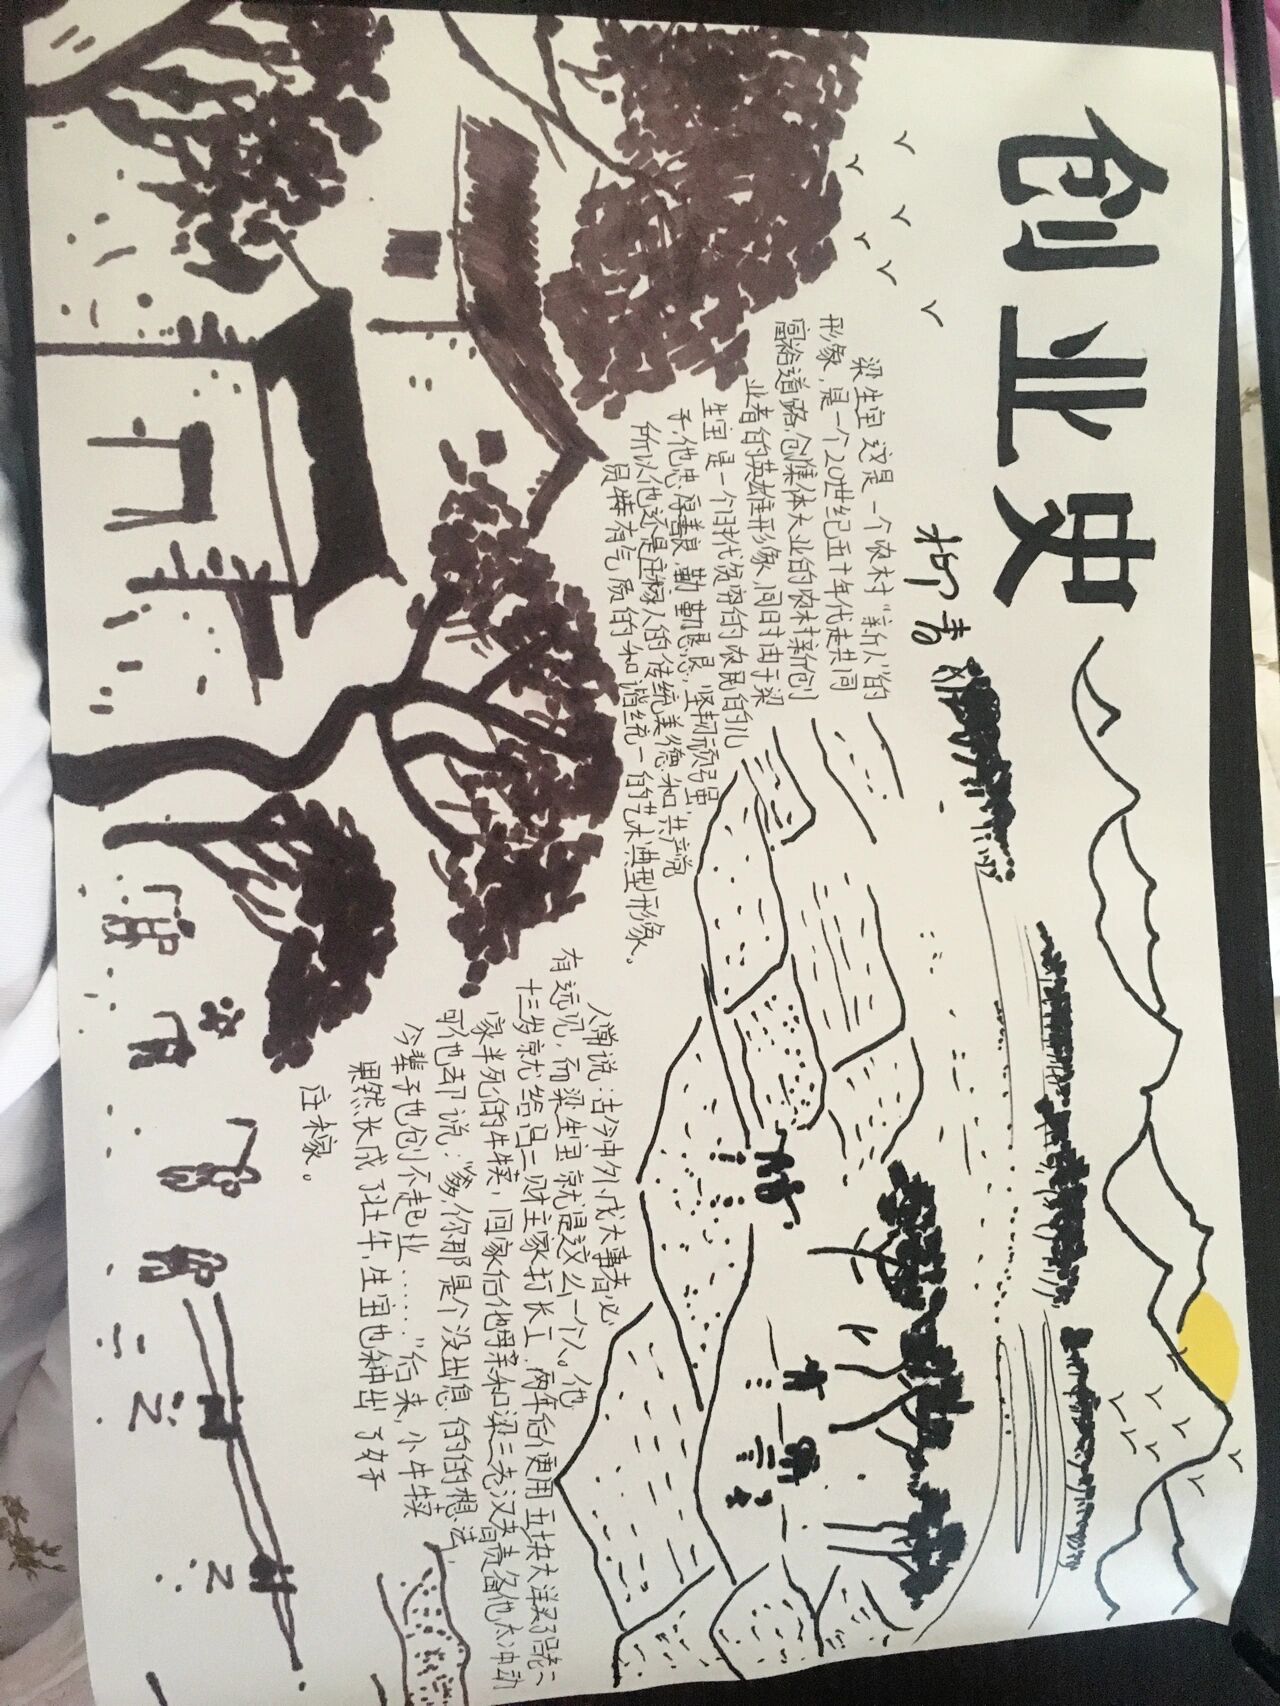 创业史
柳青
梁生宝这是一个农村“新人”的
形象,是一个20世纪五十年代走共同
富裕道路,创集体大业的农村新创
业者的英雄形象,同时由于梁
生宝是一个旧时代贫穷的农民的儿
子,他忠厚善良,勤勤恳恳,坚韧顽强
所以他还是庄稼人的传统美德和共产党
员特有气质的和谐统一的艺术典型形象。
人常说:古今中外,成大事者必
有远见,而梁生宝就是这么一个人。他
十三岁就给吕二财主家打长工,两年后便用五块大洋买了吕老二
家半死的牛犊,回家后他母亲和梁三老汉责备他太冲动
可他却说:“爹,你那是个没出息的的想法,
今辈子也创不起业……”后来,小牛犊
果然长成了壮牛,生宝也种出了好
庄稼。